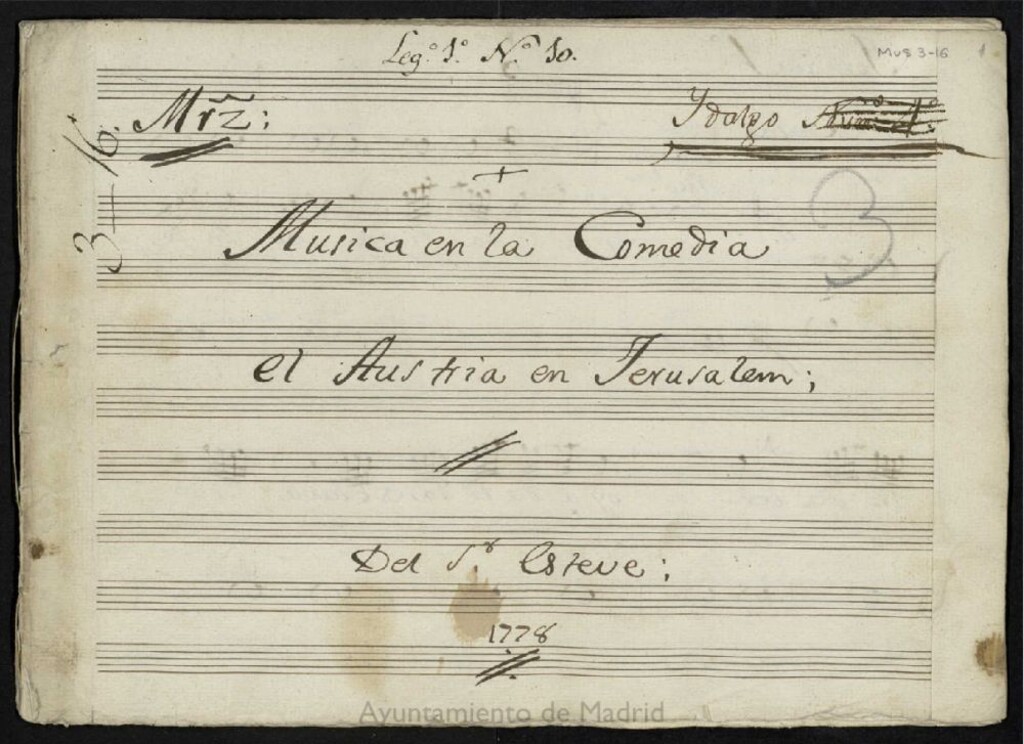 Leg.º 1.º N.º 10.
Mus 3-16
1
Mrz̃:
Ydalgo
3-16.
+
3
Musica en la Comedia
el Austria en Jerusalem;
Del S.r Esteve;
1778
Ayuntamiento de Madrid